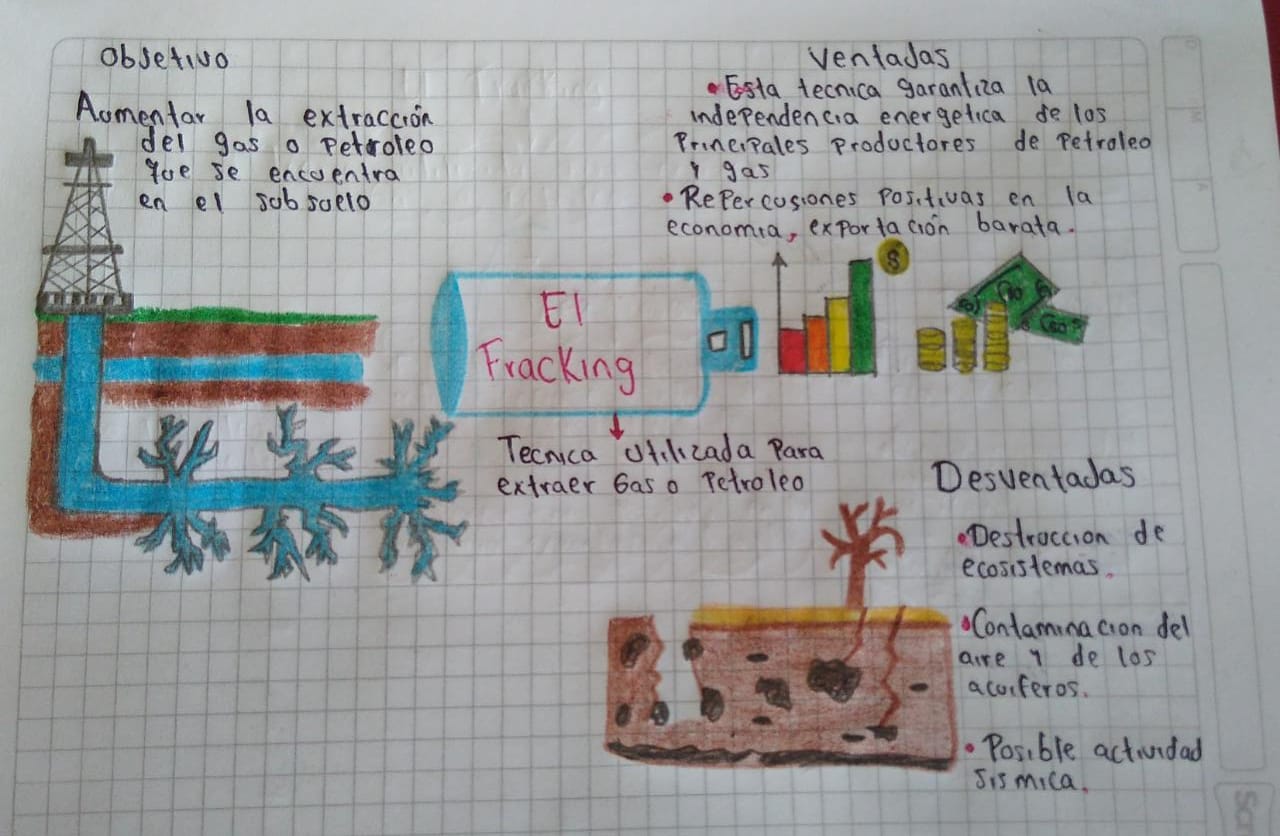 Objetivo
Aumentar la extracción
del gas o Petroleo
que se encuentra
en el subsuelo
Ventadas
• Esta tecnica garantiza la
independencia energetica de los
Principales Productores de Petroleo
y gas
• Repercusiones Positivas en la
economia, exportación barata.
$
El
Fracking
Tecnica Utilizada Para
extraer Gas o Petroleo
Desventadas
• Destruccion de
ecosistemas.
• Contaminacion del
aire y de los
acuiferos.
• Posible actividad
sismica.